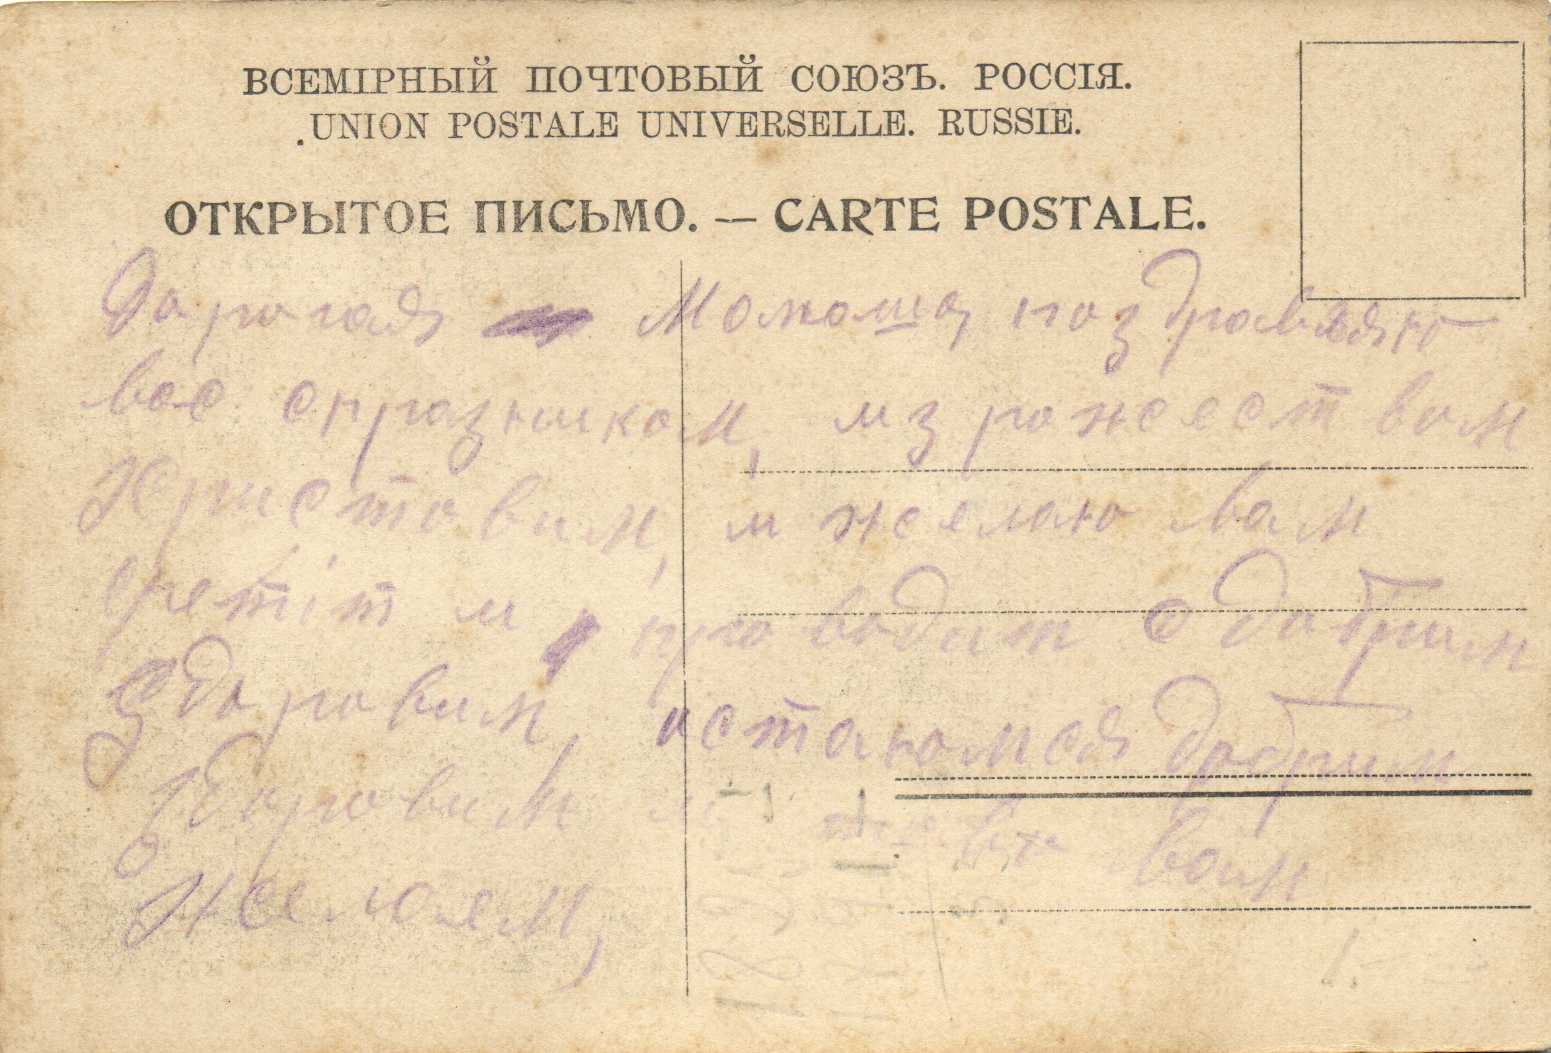 ВСЕМІРНЫЙ ПОЧТОВЫЙ СОЮЗЪ. РОССІЯ.
UNION POSTALE UNIVERSELLE. RUSSIE.
ОТКРЫТОЕ ПИСЬМО. — CARTE POSTALE.
Дорогая Мамаша, поздравляю
вас спразником, из рожеством
Христовим, и желаю вам
сретіт и проводит с добрим
здоровим, остаюмся добрим
здоровим и вам
желаем,